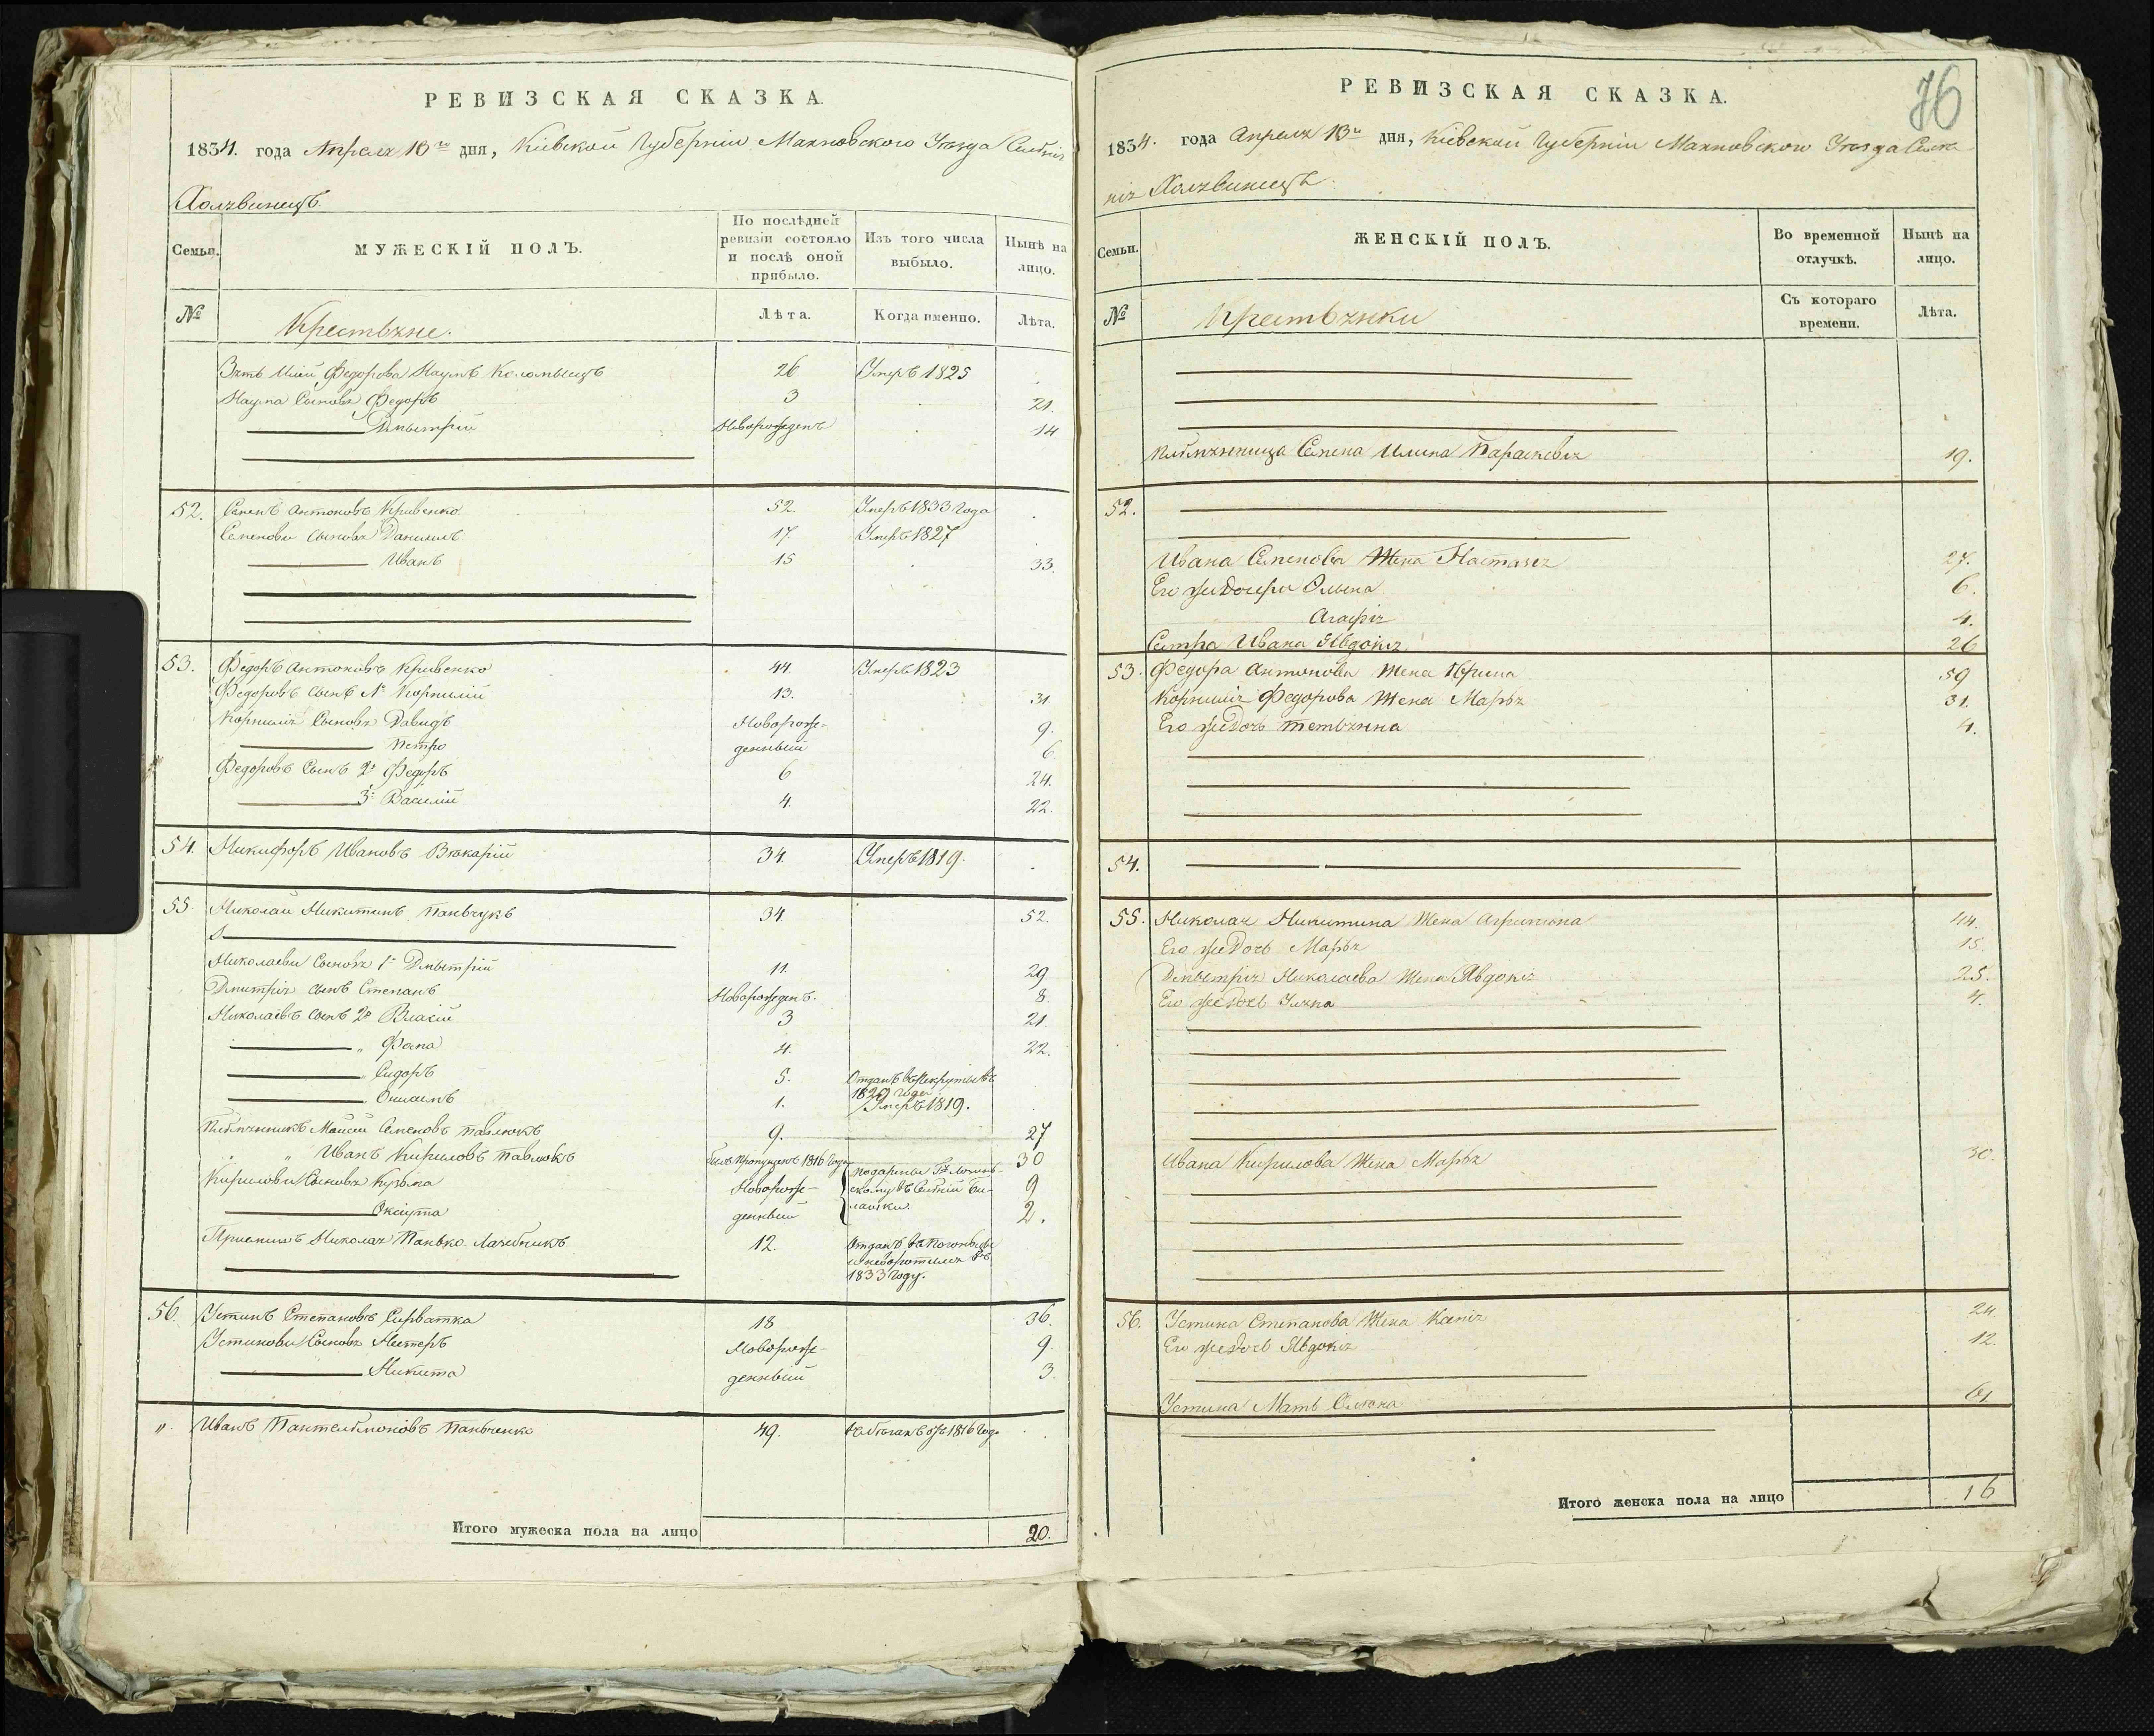 РЕВИЗСКАЯ СКАЗКА.
1834. года Апреля 13го дня, Кіевской Губерніи Махновского Уѣзда Селенія
Холявинецъ.
Семьи. МУЖЕСКІЙ ПОЛЪ. По послѣдней ревизіи состояло и послѣ оной прибыло. Изъ того числа выбыло. Нынѣ на лицо.
№ Крестьяне. Лѣта. Когда именно. Лѣта.
Зять Федорова Наумъ Коломыецъ 26 Умеръ 1825
Наума Сыновья Федоръ 3 21.
Дмытрій Новорожденъ 14
52. Семенъ Антоновъ Кривенко 52. Умеръ 1833 года
Семенови Сыновья Данилъ 17. Умеръ 1827
Иванъ 15 33.
53. Федоръ Антоновъ Кривенко 44. Умеръ 1823
Федоровъ Сынъ 1й Корнилій 13. 31
Корнилія Сыновья Давидъ Новорож- 9.
Петро денный 6
Федоровъ Сынъ 2й Федоръ 6 24.
3й Василій 4. 22.
54. Никифоръ Ивановъ 34. Умеръ 1819.
55. Николай Никитинъ Паньчукъ 34 52.
Николаеви Сыновья 1й Дмытрій 11. 29.
Дмитрія сынъ Степанъ Новорожденъ. 8.
Николаевъ Сынъ 2й Власій 3 21.
„ Фома 4. 22.
„ Сидоръ 5. Отданъ въ Рекруты въ
1829 года
1. Умеръ 1819.
Племянникъ Моисей Семеновъ Павлюкъ 9. 27
„ „ Иванъ Кириловъ Павлюкъ былъ пропущенъ 1816 года 30
Кирилови Сыновья Кузьма Новорож- 9
денный 2.
Николая Панько 12. Отданъ
1833 году.
56. Устинъ Степановъ Сирватка 18 36.
Устинови Сыновья Нестеръ Новорож- 9.
Никита денный 3.
„. Иванъ Пантелймоновъ Паньченко 49. 1816 года
Итого мужеска пола на лицо 20.
76
РЕВИЗСКАЯ СКАЗКА.
1834. года Апреля 13го дня, Кіевской Губерніи Махновского Уѣзда Селе
нія Холявинецъ.
Семьи. ЖЕНСКІЙ ПОЛЪ. Во временной отлучкѣ. Нынѣ на лицо.
№ Крестьянки Съ котораго времени. Лѣта.
Племянница Семена Илина Параскевія 19.
52.
Ивана Семенова Жена Настазія 27.
Его же Дочери Олына 6.
Агафія 4.
Сестра Ивана Явдокія 26
53. Федора Антонова Жена Ирина 59
Корнилія Федорова Жена Марья 31.
Его же Дочь Тетьянна 4.
54.
55. Николая Никитина Жена 44.
Его же Дочь Марья 15.
Дмытрія Николаева Жена Явдокія 25.
Его же Дочь Уляна 4.
Ивана Кирилова Жена Марья 30.
56. Устина Степанова Жена Ксенія 24
Его же Дочь Явдокія 12.
Устина Мать Олѣна 61
Итого женска пола на лицо 16